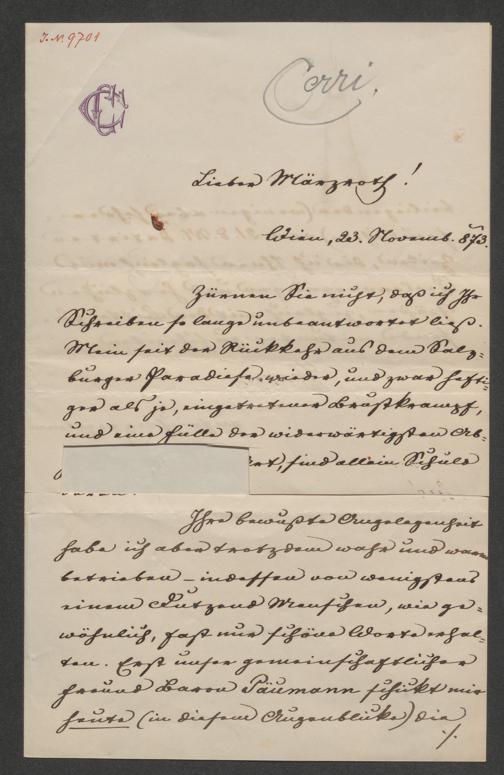 I. N. 9701
Cerri.
Lieber Märzroth!
Wien, 23. Novemb. 873.
Zürnen Sie nicht, daß ich Ihr
Schreiben so lange unbeantwortet ließ.
Mein seit der Rückkehr aus dem Salz-
burger Paradiese wieder, und zwar hefti-
ger als je, eingetretener Brustkrampf,
und eine Fülle der widerwärtigsten Ar-
sind allein Schuld
Ihre bewußte Angelegenheit
habe ich aber trotzdem wahr und warm
betrieben – indessen von wenigstens
einem Dutzend Menschen, wie ge-
wöhnlich, fast nur schöne Worte erhal-
ten. Erst unser gemeinschaftlicher
Freund Baron Päumann schukt mir
heute (in diesem Augenblicke) die
./.